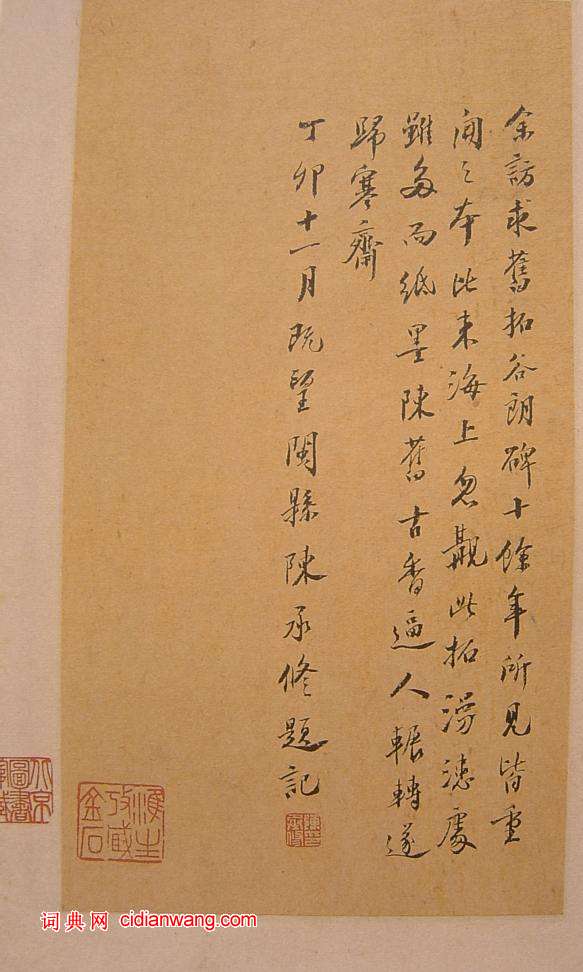 余訪求舊拓谷朗碑十餘年所見皆重
開之本比来海上忽覯此拓漫漶處
雖多而紙墨陳舊古香逼人輾轉遂
歸寒齋
丁卯十一月既望閩縣陳承修題記
淮生
攷臧
金石
北京
圖書
词典网 cidianwang.com